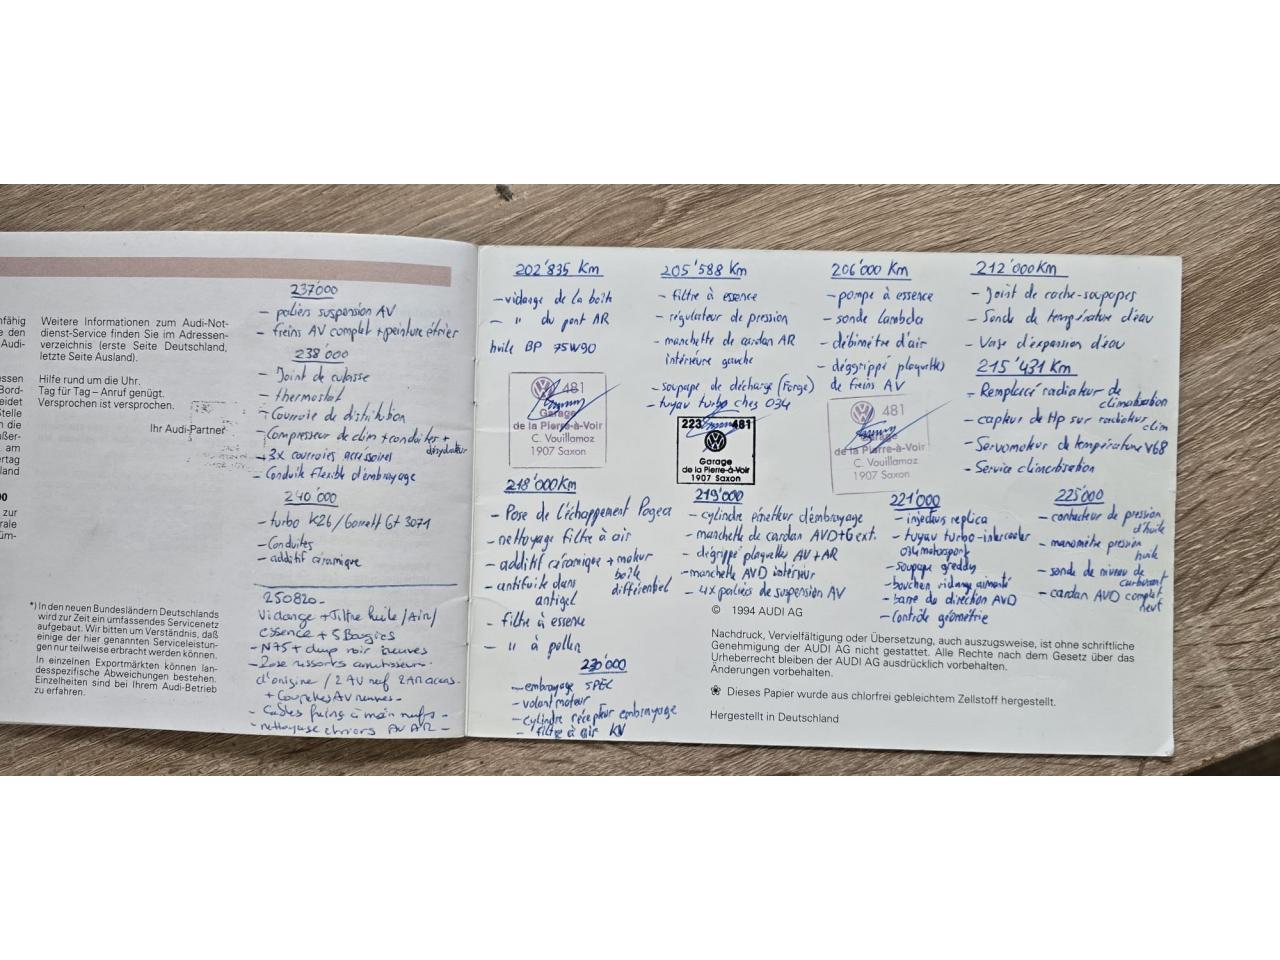 nfähig
e den
Audi-
essen
Bord-
eidet
Stelle
n die
ußer-
am
ertag
land
00
zur
rale
üm-
Weitere Informationen zum Audi-Not-
dienst-Service finden Sie im Adressen-
verzeichnis (erste Seite Deutschland,
letzte Seite Ausland).
Hilfe rund um die Uhr.
Tag für Tag – Anruf genügt.
Versprochen ist versprochen.
Ihr Audi-Partner
*) In den neuen Bundesländern Deutschlands
wird zur Zeit ein umfassendes Servicenetz
aufgebaut. Wir bitten um Verständnis, daß
einige der hier genannten Serviceleistun-
gen nur teilweise erbracht werden können.
In einzelnen Exportmärkten können lan-
desspezifische Abweichungen bestehen.
Einzelheiten sind bei Ihrem Audi-Betrieb
zu erfahren.
237'000
- paliers suspension AV
- freins AV complet + peinture étrier
238'000
- Joint de culasse
- thermostat
- Courroie de distribution
- Compresseur de clim + conduites +
désydrateur
+ 3x courroies accessoires
- Conduit flexible d'embrayage
240'000
- turbo K26/Garrett Gt 3071
- Conduites
- additif céramique
250820-
Vidange + Filtre huile/Air/
essence + 5 Bougies
- N75 + dump noir neuves
- Pose ressorts amortisseurs-
d'origine / 2 AV neuf 2AR
+ Coupelles AV neuves-
- Cables freins à main neufs-
- nettoyage AV AR -
202'835 Km
- vidange de la boîte
- " du pont AR
huile BP 75W90
481
Garage
de la Pierre-à-Voir
C. Vouillamoz
1907 Saxon
205'588 Km
- filtre à essence
- régulateur de pression
- manchette de cardan AR
intérieure gauche
- soupape de décharge (Forge)
- tuyau turbo chez 034
223 481
Garage
de la Pierre-à-Voir
1907 Saxon
206'000 Km
- pompe à essence
- sonde lambda
- débimètre d'air
- dégrippé plaquettes
de freins AV
481
Garage
de la Pierre-à-Voir
C. Vouillamoz
1907 Saxon
212'000Km
- Joint de cache-soupapes
- Sonde de température d'eau
- Vase d'expansion d'eau
215'431 Km
- Remplacé radiateur de
climatisation
- capteur de Hp sur radiateur
clim
- Servomoteur de température V68
- Service climatisation
218'000Km
- Pose de l'échappement Pogea
- nettoyage filtre à air
- additif céramique + moteur
boîte
différentiel
- antifuite dans
antigel
- filtre à essence
- " à pollen
219'000
- cylindre émetteur d'embrayage
- manchette de cardan AVD+G ext.
- dégrippé plaquettes AV + AR
- manchette AVD intérieur
- 4x paliers de suspension AV
221'000
- injecteurs replica
- tuyau turbo-intercooler
034motorsport
- soupape greddy
- bouchon vidange aimanté
- barre de direction AVD
- Contrôle géométrie
225'000
- contacteur de pression
d'huile
- manomètre pression
huile
- sonde de niveau de
carburant
- cardan AVD complet
neuf
230'000
- embrayage SPEC
- volant moteur
- cylindre récepteur embrayage
- filtre à air KN
© 1994 AUDI AG
Nachdruck, Vervielfältigung oder Übersetzung, auch auszugsweise, ist ohne schriftliche
Genehmigung der AUDI AG nicht gestattet. Alle Rechte nach dem Gesetz über das
Urheberrecht bleiben der AUDI AG ausdrücklich vorbehalten.
Änderungen vorbehalten.
Dieses Papier wurde aus chlorfrei gebleichtem Zellstoff hergestellt.
Hergestellt in Deutschland